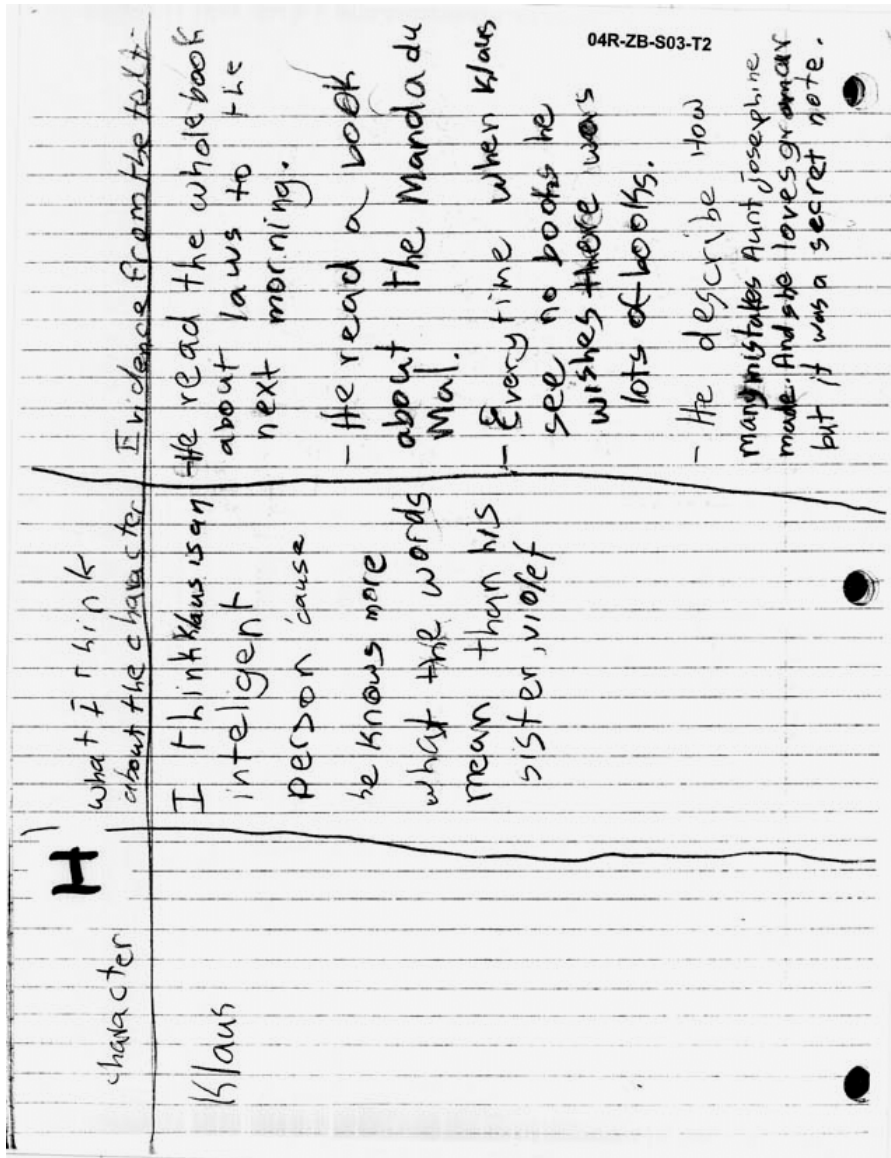 04R-ZB-S03-T2
H
character
What I think
about the character
Evidence from the text
Klaus
I think Klaus is an
inteligent
person 'cause
he knows more
what the words
mean than his
sister, violet
-He read the whole book
about laws to the
next morning.
- He read a book
about the Mandadu
Mal.
- Every time when Klaus
see no books he
wishes there was
lots of books.
- He describe How
many mistakes Aunt Josephine
made. And she loves gramar
but it was a secret note.